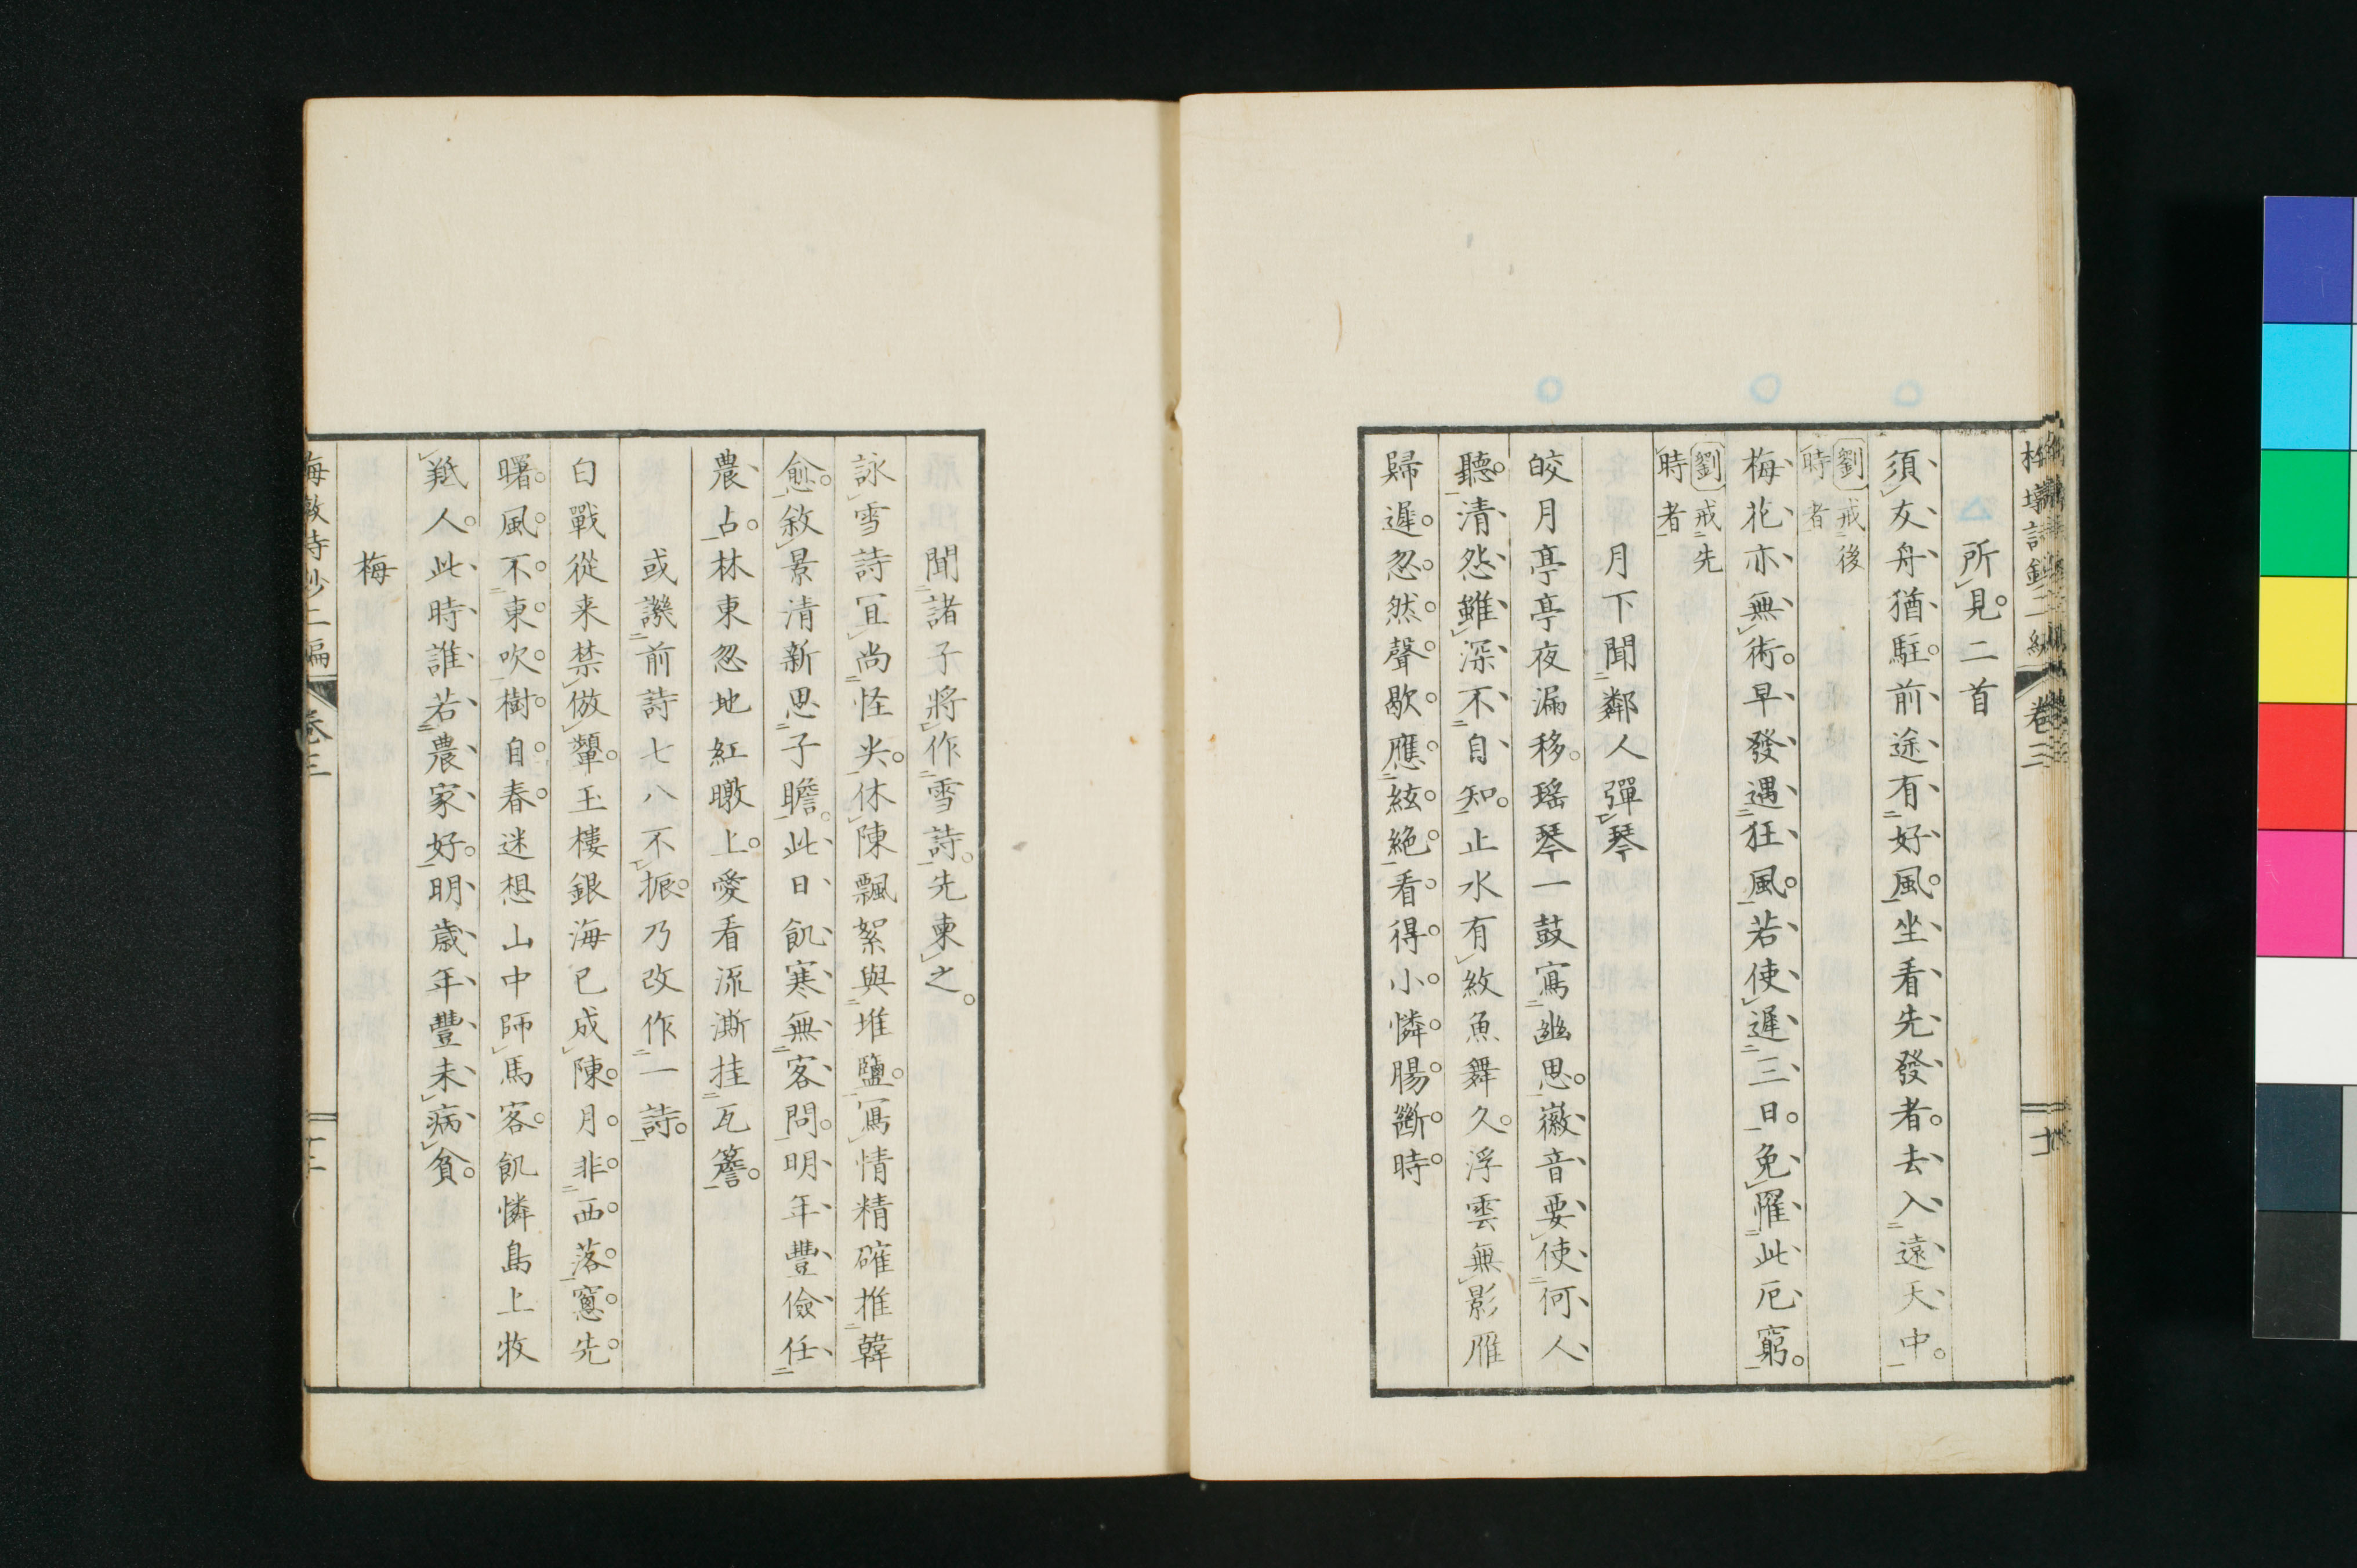 所見二首
須友舟猶駐前途有好風坐看先發者去入遠天中
劉戒後
時者
梅花亦無術早發遇狂風若使遲三日免罹此厄窮
劉戒先
時者
月下聞鄰人彈琴
皎月亭亭夜漏移瑤琴一鼓寫幽思徽音要使何人
聽清怨雖深不自知止水有紋魚舞久浮雲無影雁
歸遲忽然聲歇應絃絶看得小憐腸斷時
聞諸子將作雪詩先柬之
詠雪詩宜尚怪尖休陳飄絮與堆鹽寫情精確推韓
愈敘景清新思子瞻此日飢寒無客問明年豐儉任
農占林東忽地紅暾上愛看流澌挂瓦簷
或譏前詩七八不振乃改作一詩
白戰從来禁倣顰玉樓銀海已成陳月非西落窻先
曙風不東吹樹自春迷想山中師馬客飢憐島上牧
羝人此時誰若農家好明歳年豐未病貧
梅
梅墩詩鈔二編 卷三